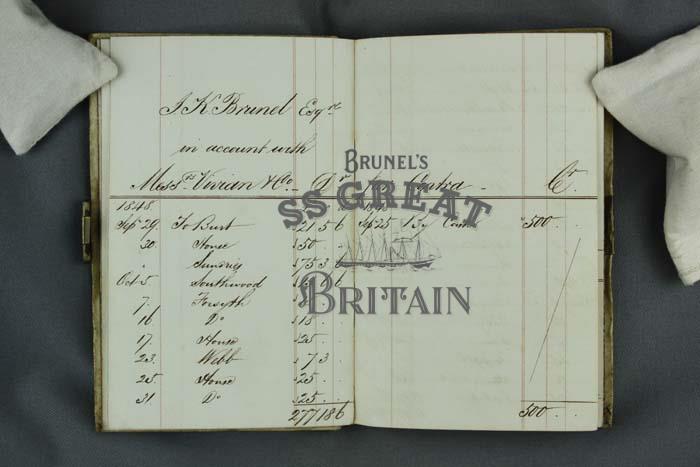 I K Brunel Esqre
in account with
Messrs Vivian & Co Dr
1848
Sept 29. To Burt 21 5 6
30. House 50
" Sundries 75 3
Oct 5 Southwood
7. Forsyth
16 Do 18
17. House 25
23. Webb 73
25. House 25
31. Do 25
277 18 6
Contra Cr
Sep 25 By Cash 500
500
BRUNEL'S
SS GREAT
BRITAIN